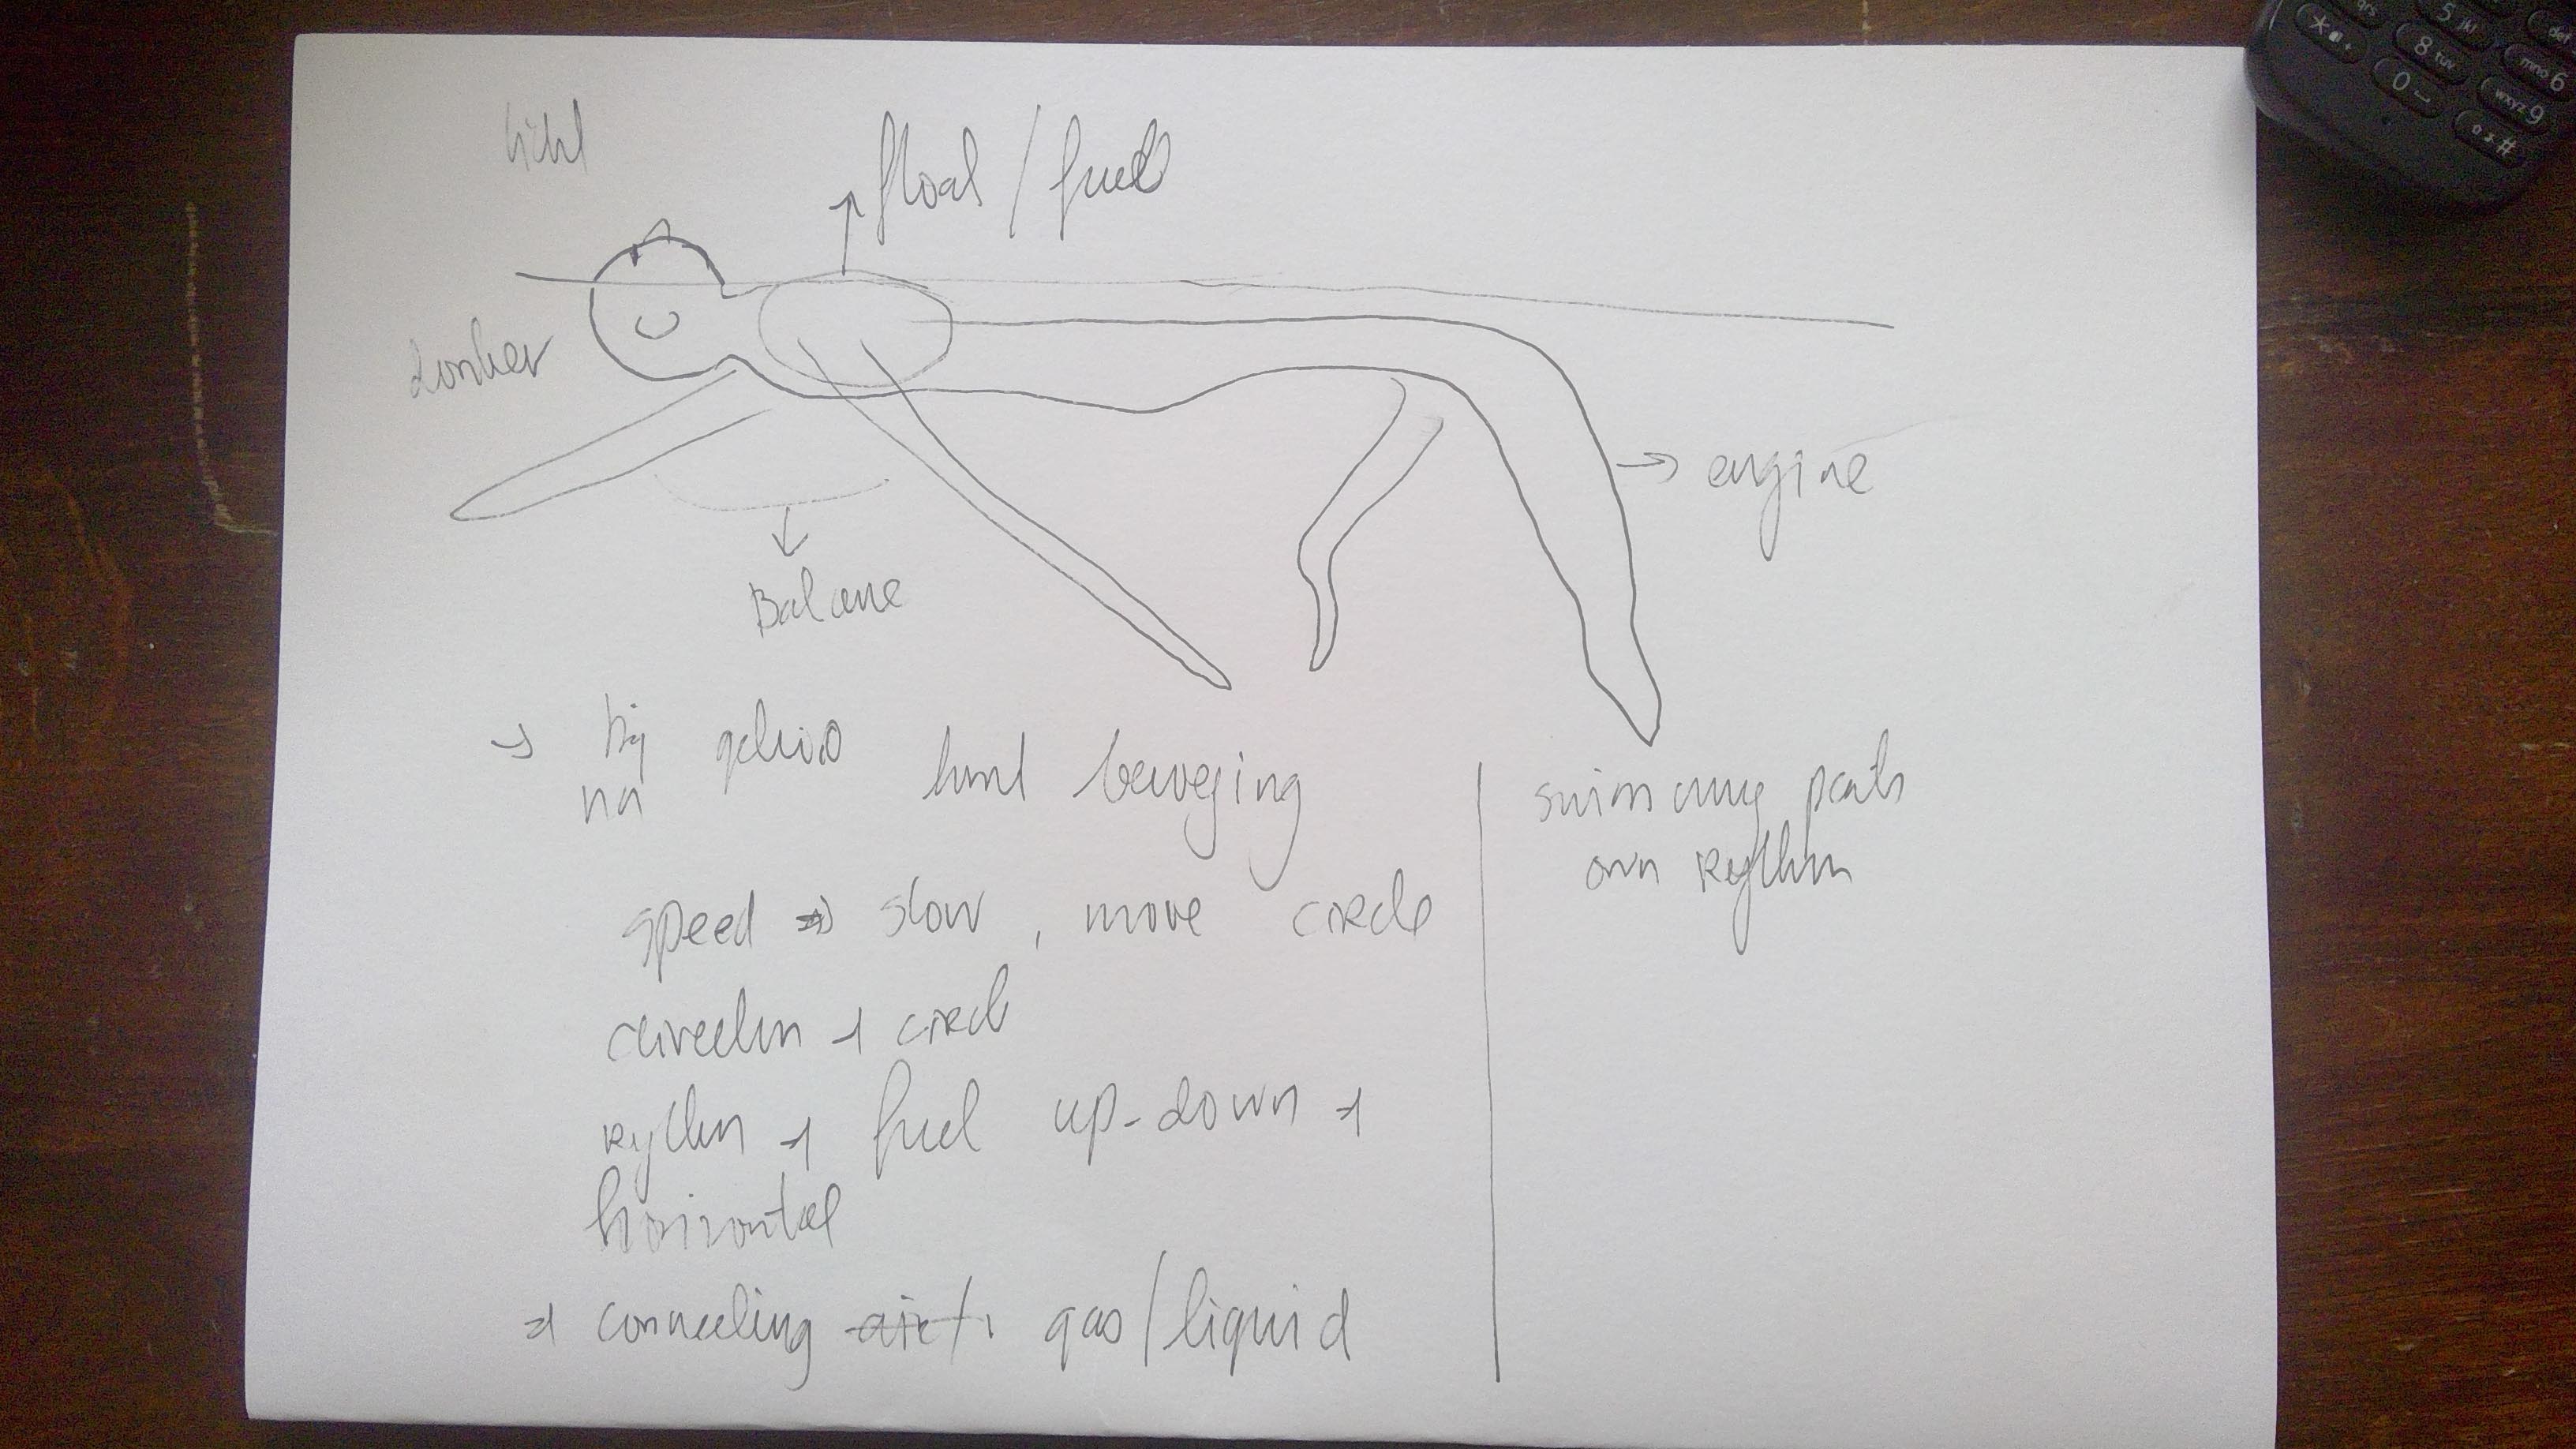 licht
float / fuel
donker
engine
Balance
→ bij geluid
na hand beweging
speed → slow , move circle
direction → circle
rythm → fuel up-down →
horizontal
→ connecting air/ gas/liquid
swimming parts
own rythm
5 jkl
* 8 tuv mno 6
0 wxyz 9
#